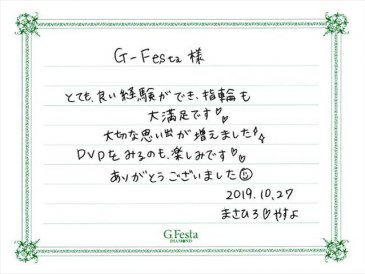 G-Festa 様
とても、良い経験ができ、指輪も
大満足です♡♡
大切な思い出が増えました!!
DVDをみるのも、楽しみです♡♡
ありがとうございました☺
2019.10.27
まさひろ♡やすよ
G.Festa
DIAMOND